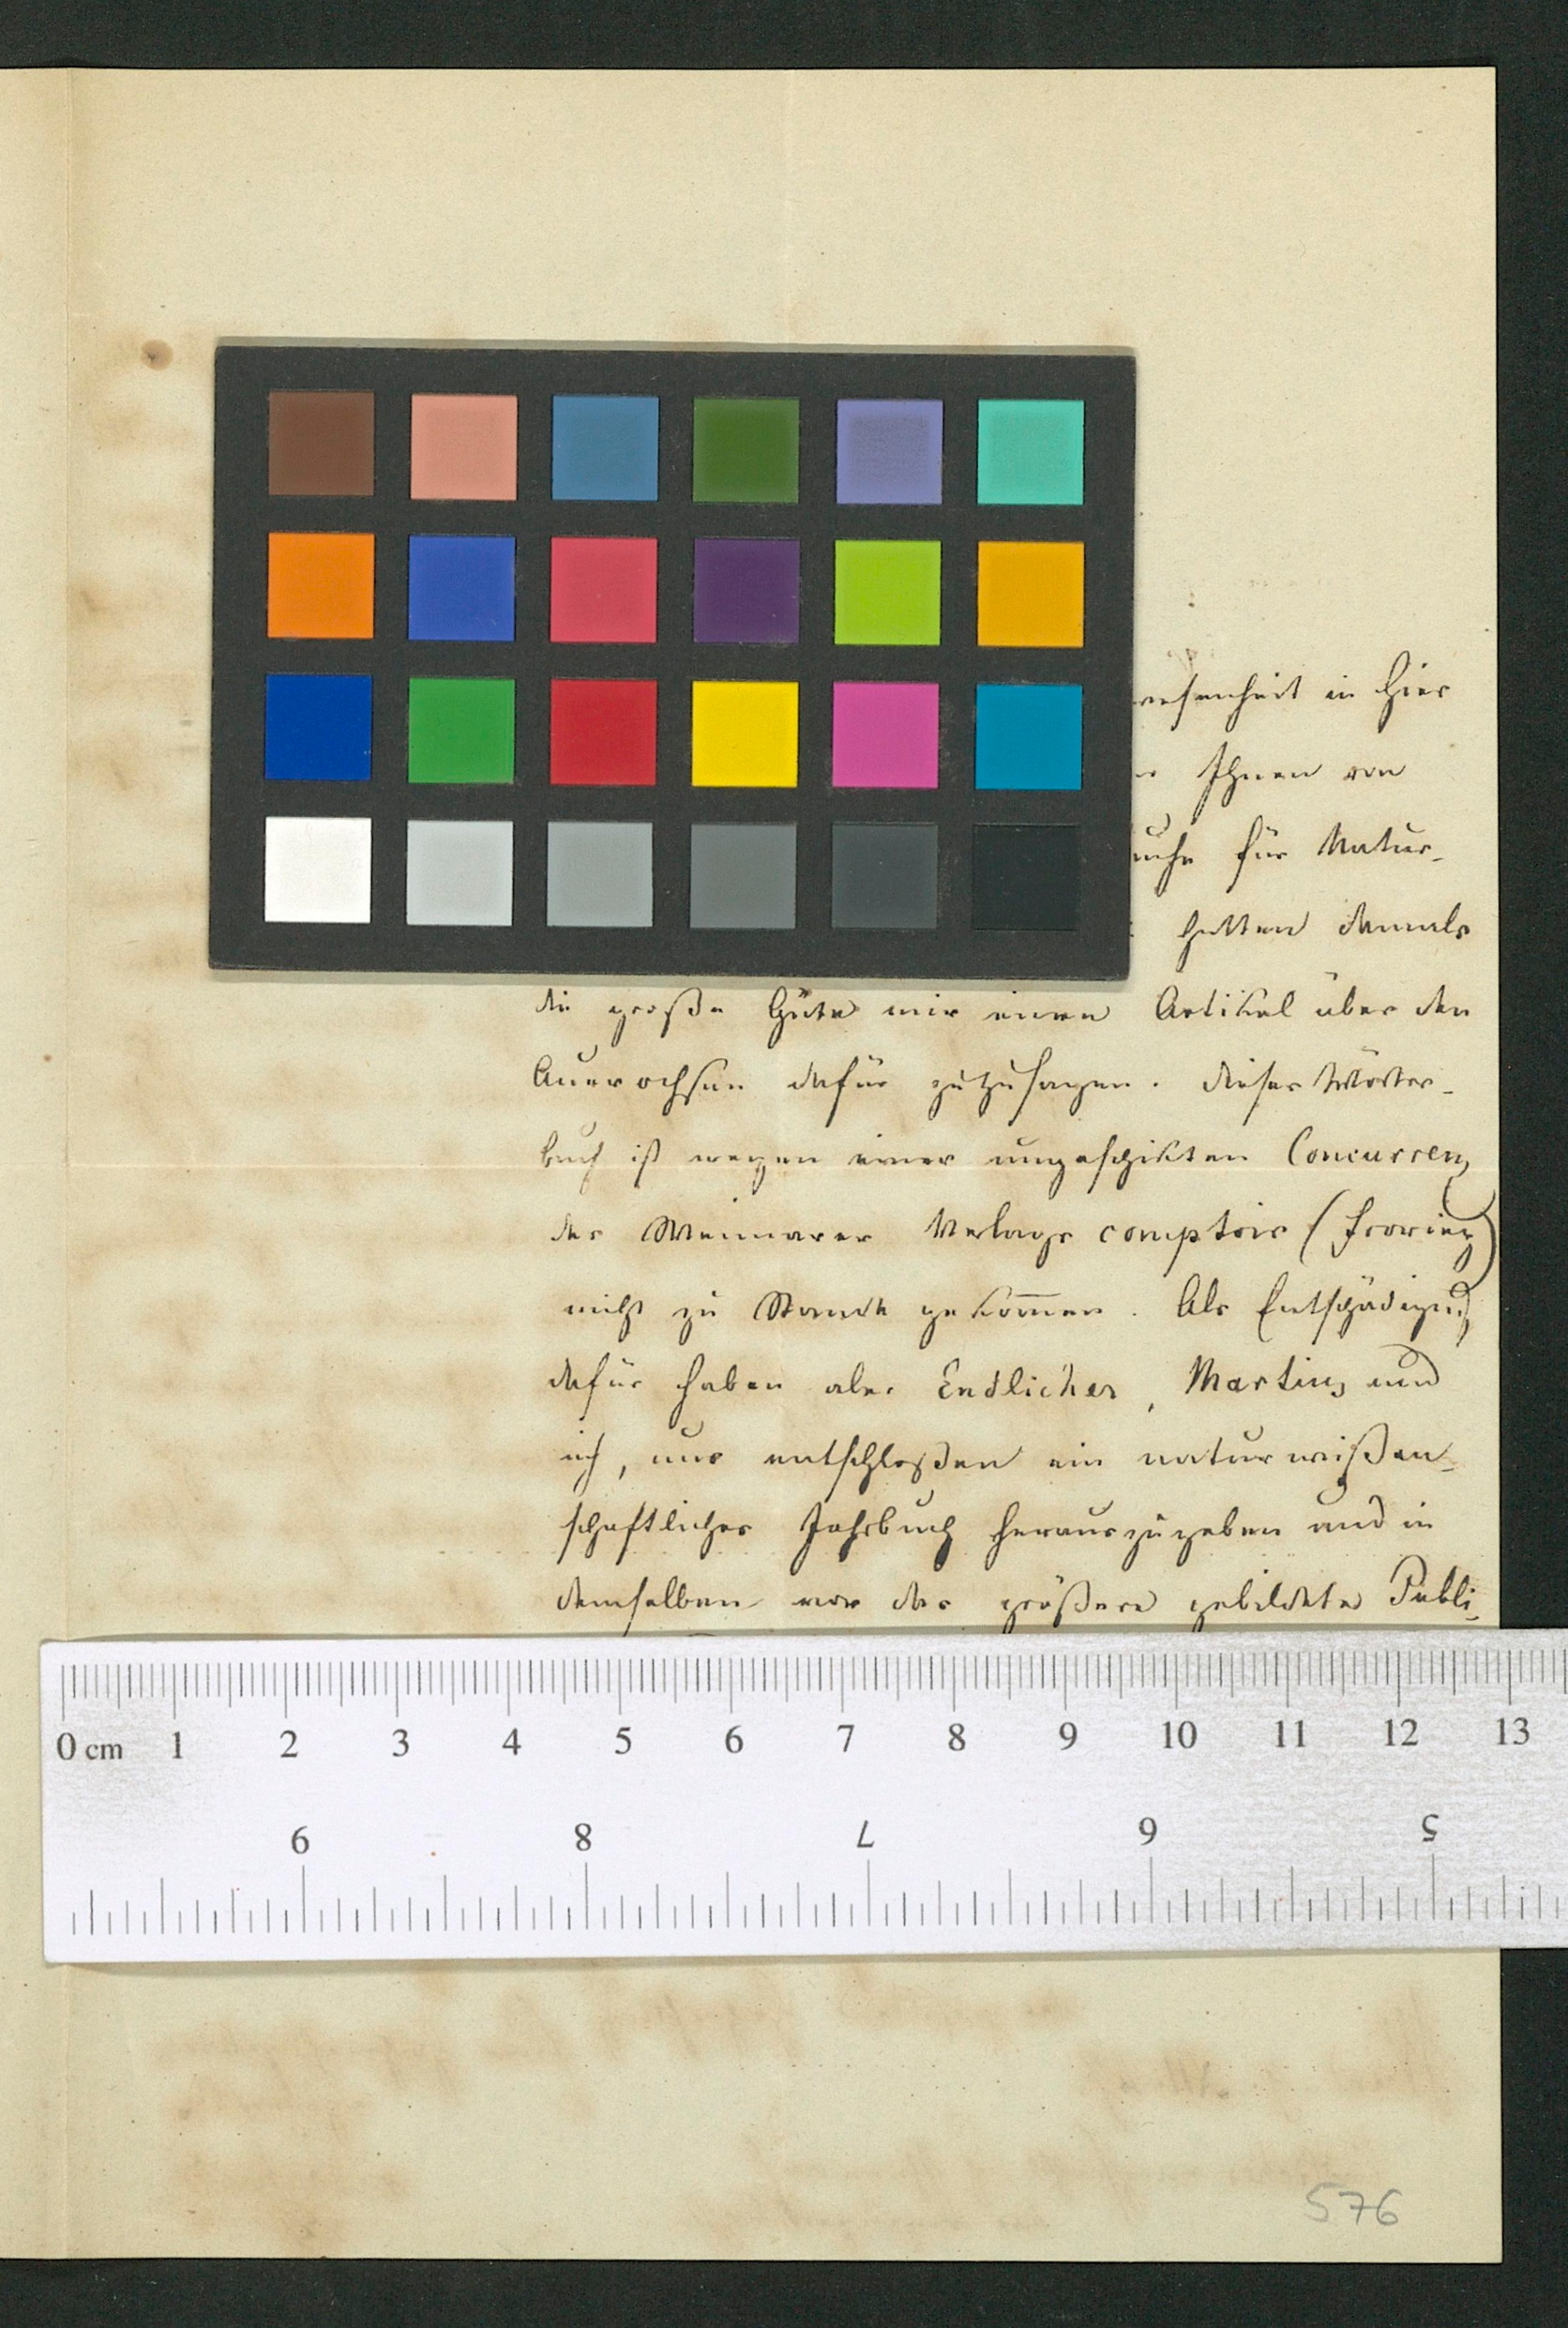 wesenheit in Hier
Ihnen von
für Natur-
hatten damals
die große Güte mir einen Artikel über den
Auerochsen dafür zuzusagen. Dieses Wörter-
buch ist wegen einer ungeschikten Concurrenz
des Weimarer Verlags comptoir (Froriep)
nicht zu Stande gekom̅en. Als Entschädigung
dafür haben aber Endlicher, Martius und
ich, uns entschloßen ein naturwißen-
schaftliches Jahrbuch herauszugeben und in
demselben vor das größere gebildete Publi-
0 cm 1 2 3 4 5 6 7 8 9 10 11 12 13
9 8 7 6 5
576